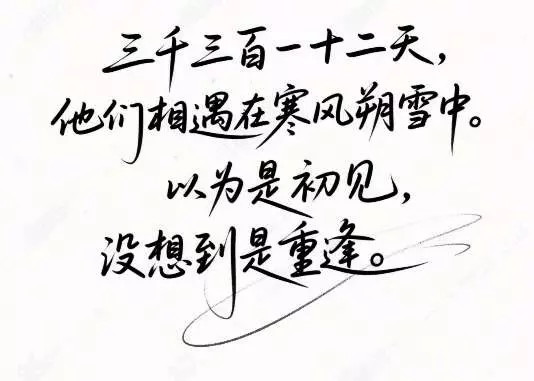 三千三百一十二天，
他们相遇在寒风朔雪中。
以为是初见，
没想到是重逢。